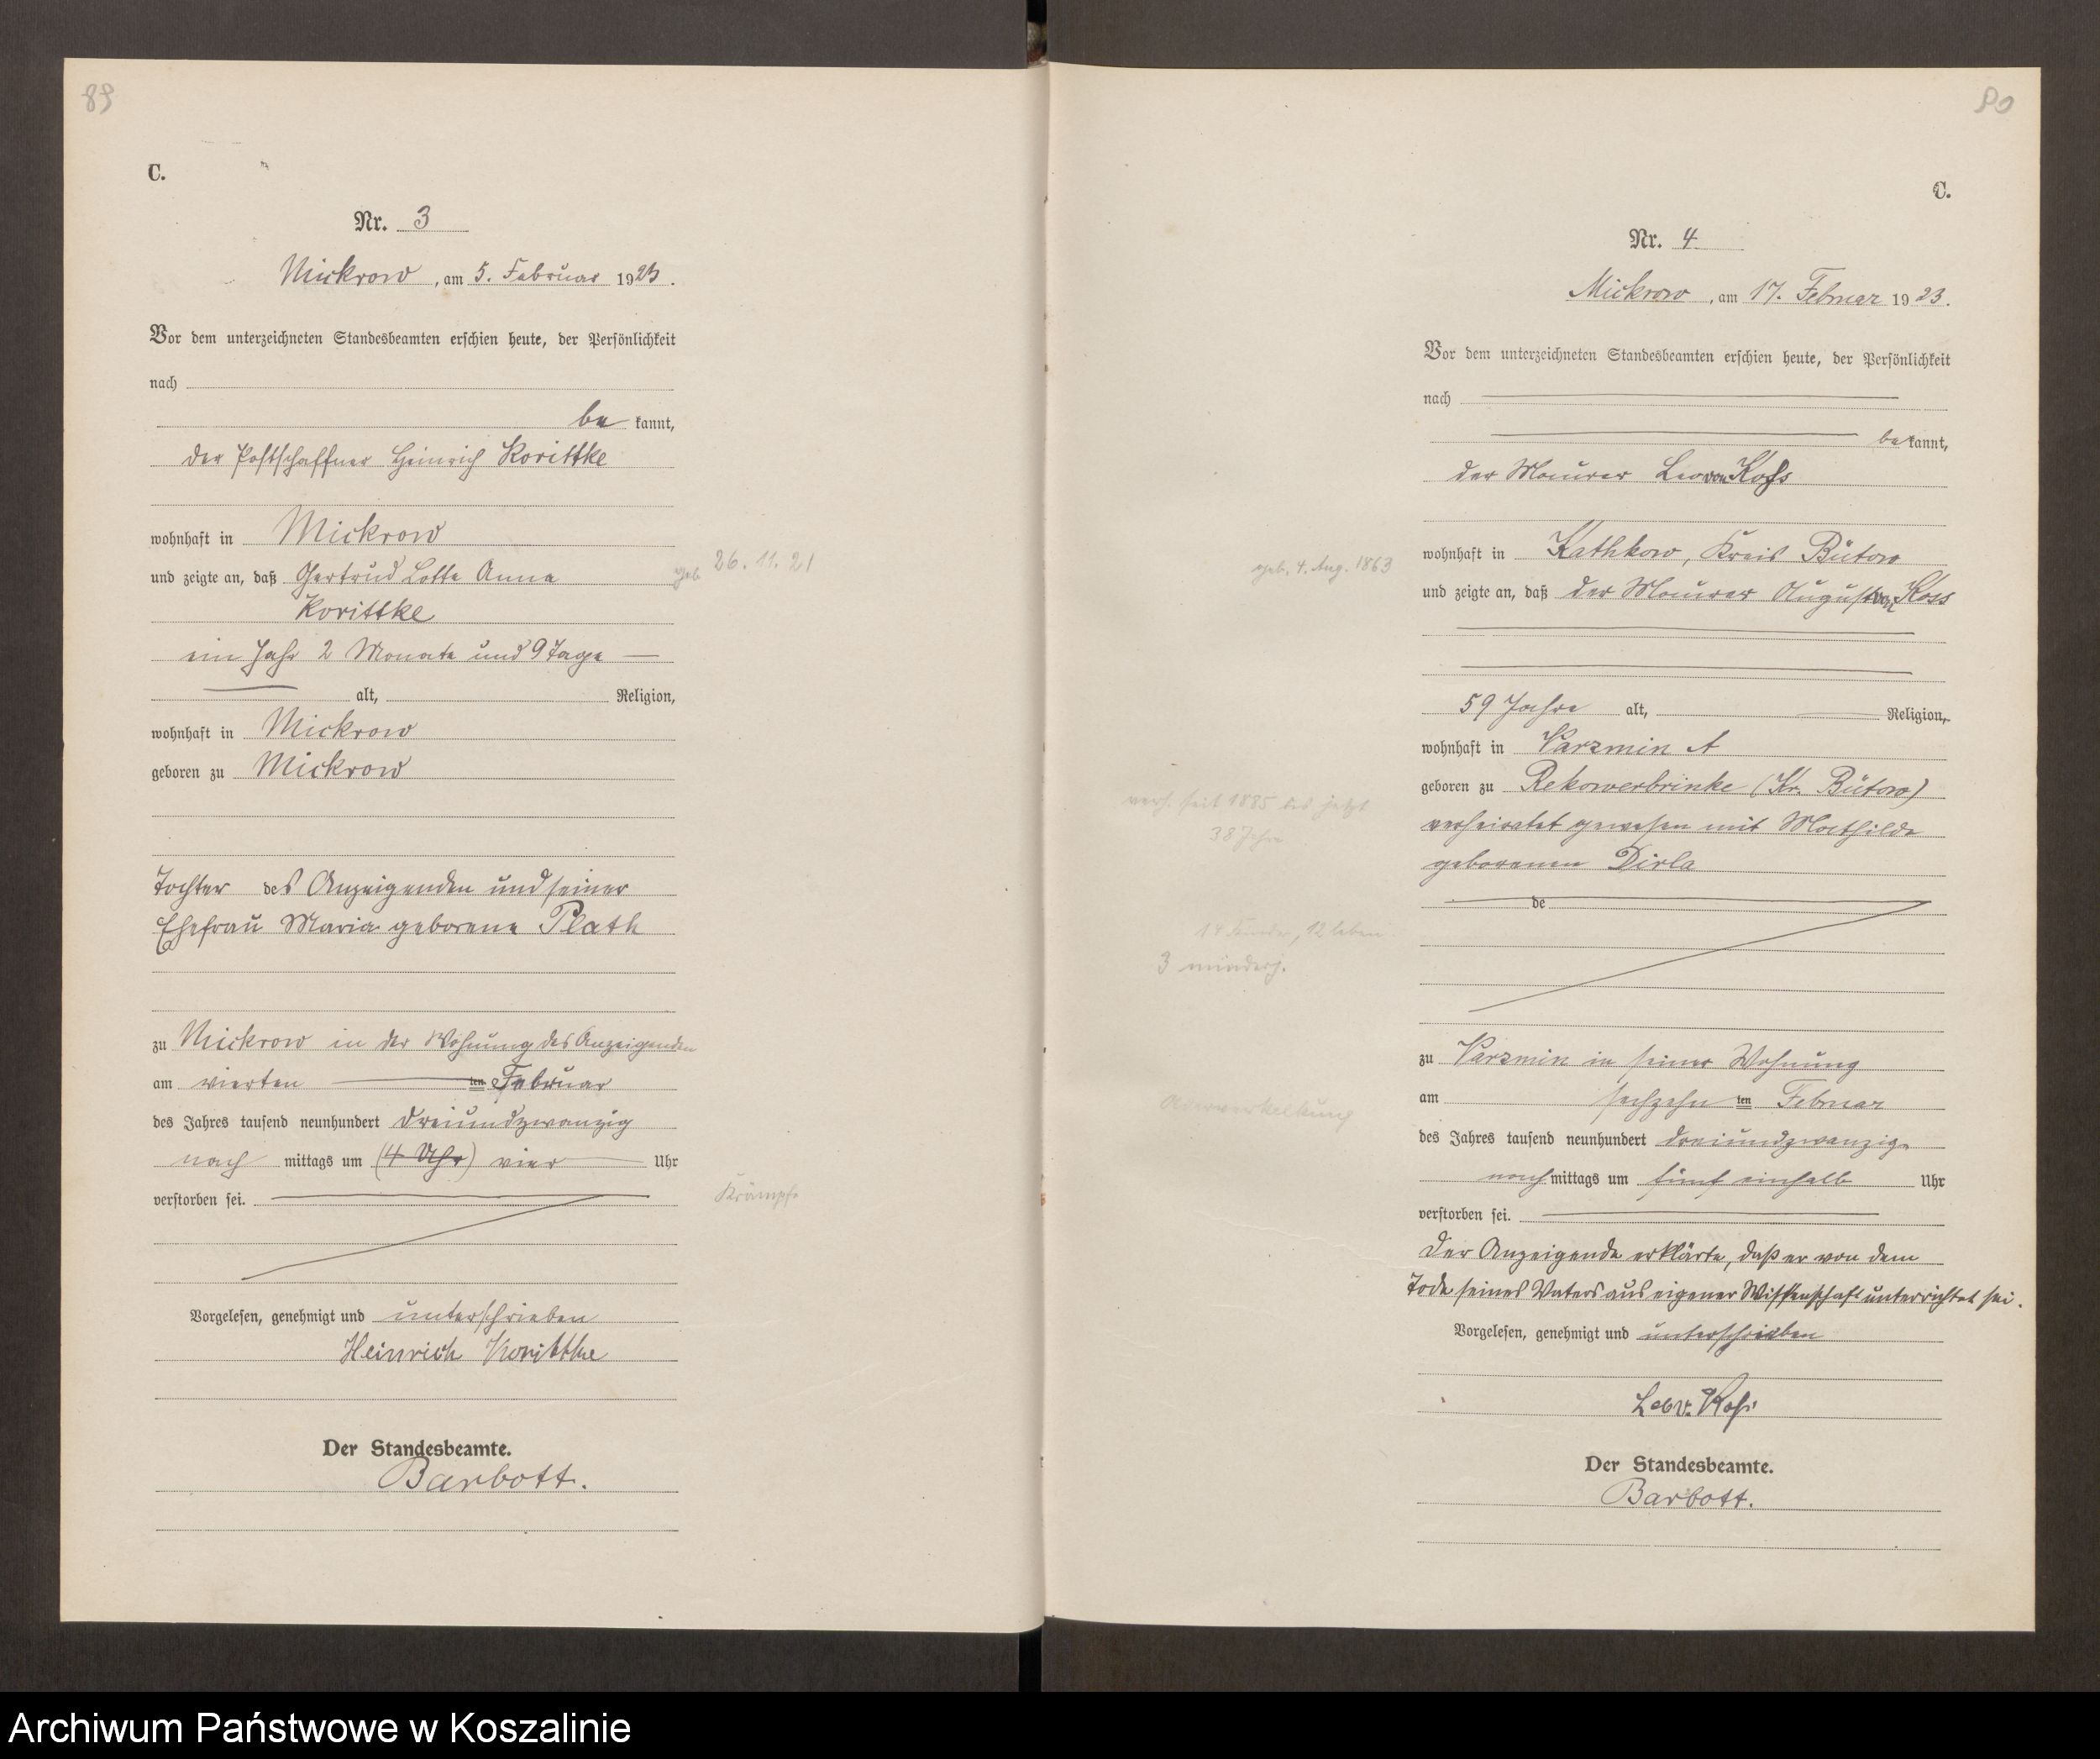 89
C.
Nr. 3
Mickrow, am 5. Februar 1923.
Vor dem unterzeichneten Standesbeamten erschien heute, der Persönlichkeit
nach
be kannt,
der Postschaffner Heinrich Korittke
wohnhaft in Mickrow
und zeigte an, daß Gertrud Lotte Anna
geb. 26. 11. 21
Korittke
ein Jahr 2 Monate und 9 Tage
alt, Religion,
wohnhaft in Mickrow
geboren zu Mickrow
Tochter des Anzeigenden und seiner
Ehefrau Maria geborene Plath
zu Mickrow in der Wohnung des Anzeigenden
am vierten ten Februar
des Jahres tausend neunhundert dreiundzwanzig
nach mittags um (4 Uhr) vier Uhr
verstorben sei.
Krämpfe
Vorgelesen, genehmigt und unterschrieben
Heinrich Korittke
Der Standesbeamte.
Barbott.
90
C.
Nr. 4
Mickrow, am 17. Februar 1923.
Vor dem unterzeichneten Standesbeamten erschien heute, der Persönlichkeit
nach
be kannt,
der Maurer Leo von Koss
wohnhaft in Kathkow, Kreis Bütow
geb. 4. Aug. 1863
und zeigte an, daß der Maurer August von Koss
59 Jahre alt, Religion,
wohnhaft in Varzmin A
geboren zu Rekowerbrinke (Kr. Bütow)
verh. seit 1885 bis jetzt
38 Jahre
verheiratet gewesen mit Mathilde
geborenen Dirla
de
14 Kinder, 12 leben
3 minderj.
zu Varzmin in seiner Wohnung
am sechzehn ten Februar
Aderverkalkung
des Jahres tausend neunhundert dreiundzwanzig
nach mittags um fünf einhalb Uhr
verstorben sei.
Der Anzeigende erklärte, daß er von dem
Tode seines Vaters aus eigener Wissenschaft unterrichtet sei.
Vorgelesen, genehmigt und unterschrieben
Leo v. Koss
Der Standesbeamte.
Barbott.
Archiwum Państwowe w Koszalinie